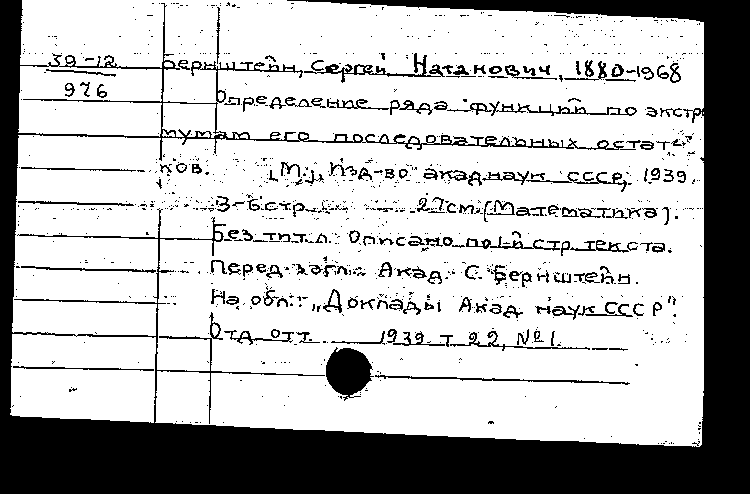 39-12
976
Бернштейн, Сергей Натанович, 1880-1968
Определение ряда функций по экстре
мумам его последовательных остат-
ков. [М.], Изд-во акад.наук СССР, 1939.
3-6 стр. 27см. (Математика).
Без тит.л. Описано по 1-й стр. текста.
Перед загл.: Акад. С. Бернштейн.
На обл.: „Доклады Акад. наук СССР".
Отд. отт. 1939. т. 22, №1.